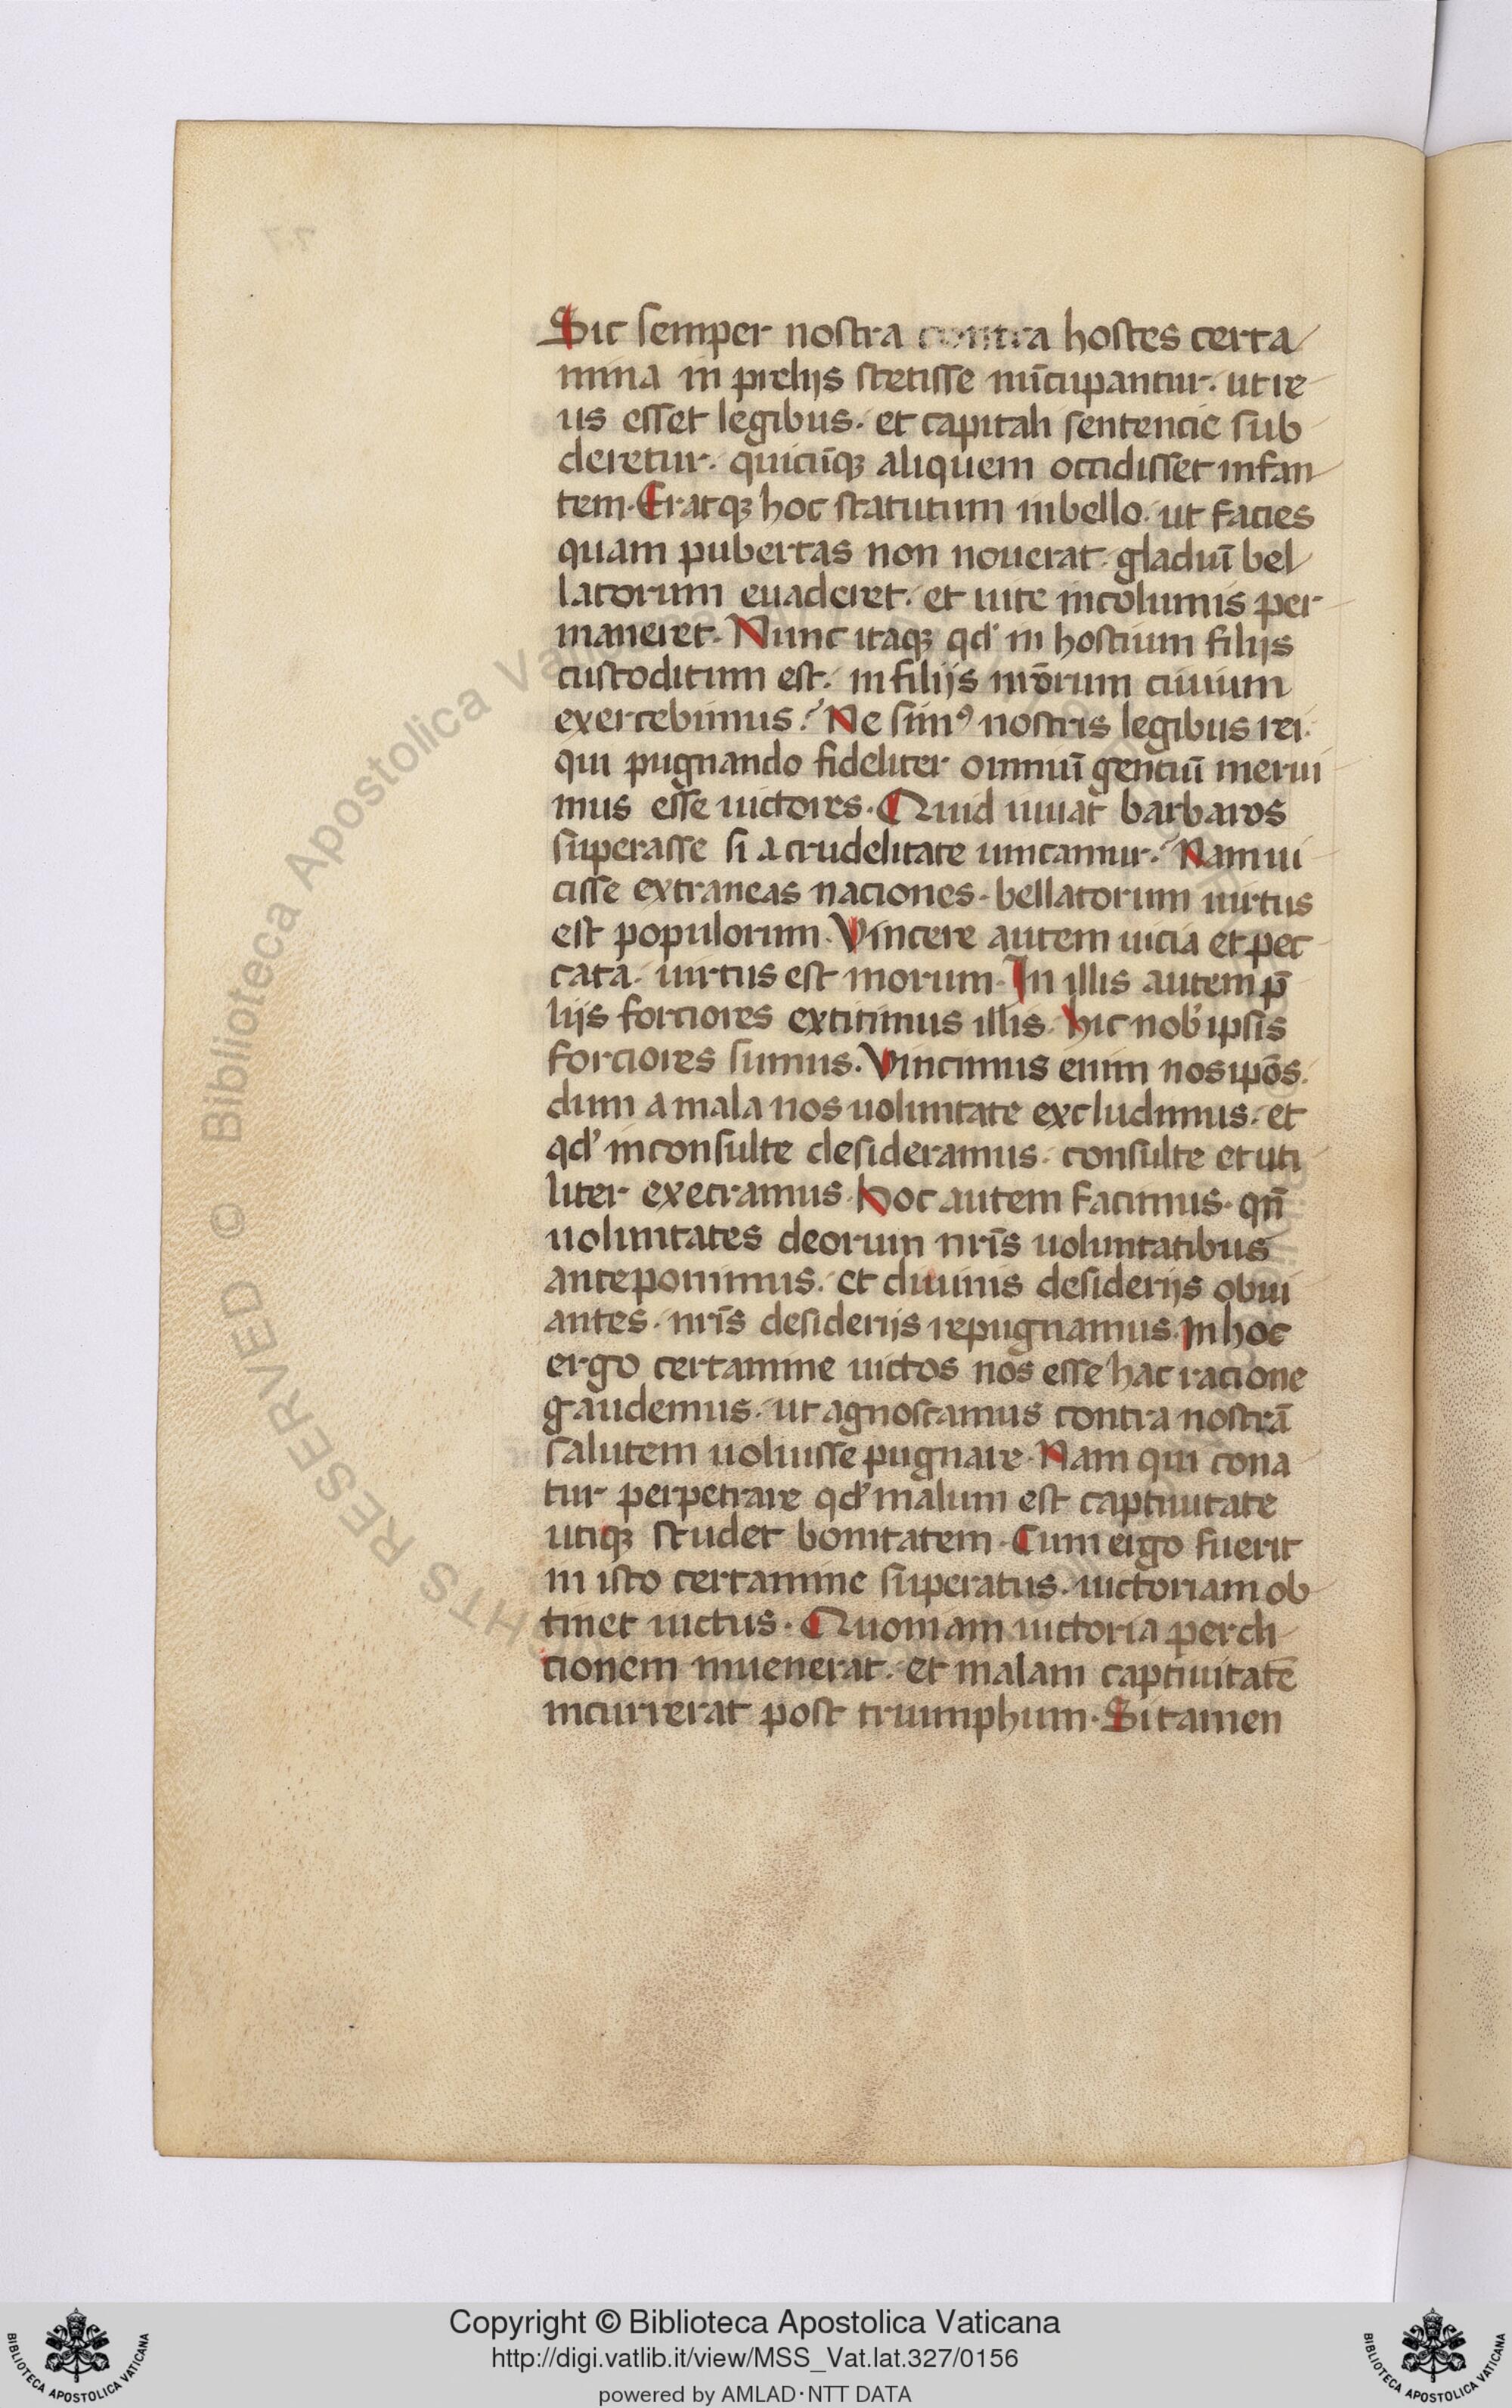 Sic semper nostra contra hostes certa
mina in prelijs stetisse nūcupantur. ut re
us esset legibus. et capitali sentencie sub
deretur. quicūqꝫ aliquem occidisset infan
tem. Eratqꝫ hoc statutum in bello. ut facies
quam pubertas non nouerat. gladiū bel
latorum euaderet. et uite incolumis per
maneret. Nunc itaqꝫ qd' in hostium filijs
custoditum est. in filijs nr̄orum ciuium
exercebimus? Ne simꝰ nostris legibus rei.
qui pugnando fideliter omniū genciū merui
mus esse uictores. Quid iuuat barbaros
superasse si a crudelitate uincamur? Nam ui
cisse extraneas naciones. bellatorum uirtus
est populorum. Vincere autem uicia et pec
cata. uirtus est morum. In illis autem p̄
lijs forciores extitimus illis. hic nob' ipsis
forciores sumus. Vincimus enim nos ipōs.
dum a mala nos uoluntate excludimus. et
qd' inconsulte desideramus. consulte et uti
liter execramus. hoc autem facimus. qn̄
uoluntates deorum nr̄is uoluntatibus
anteponimus. et diuinis desiderijs obui
antes. nr̄is desiderijs repugnamus. In hoc
ergo certamine uictos nos esse hac racione
gaudemus. ut agnoscamus contra nostrā
salutem uoluisse pugnare. Nam qui cona
tur perpetrare qd' malum est captiuitate
utiqꝫ studet bonitatem. Cum ergo fuerit
in isto certamine superatus. uictoriam ob
tinet uictus. Quoniam uictoria perdi
cionem inuenerat. et malam captiuitatē
incurrerat post triumphum. Si tamen
RESERVED © Biblioteca Apostolica
Copyright © Biblioteca Apostolica Vaticana
http://digi.vatlib.it/view/MSS_Vat.lat.327/0156
powered by AMLAD·NTT DATA
BIBLIOTECA APOSTOLICA VATICANA
BIBLIOTECA APOSTOLICA VATICANA